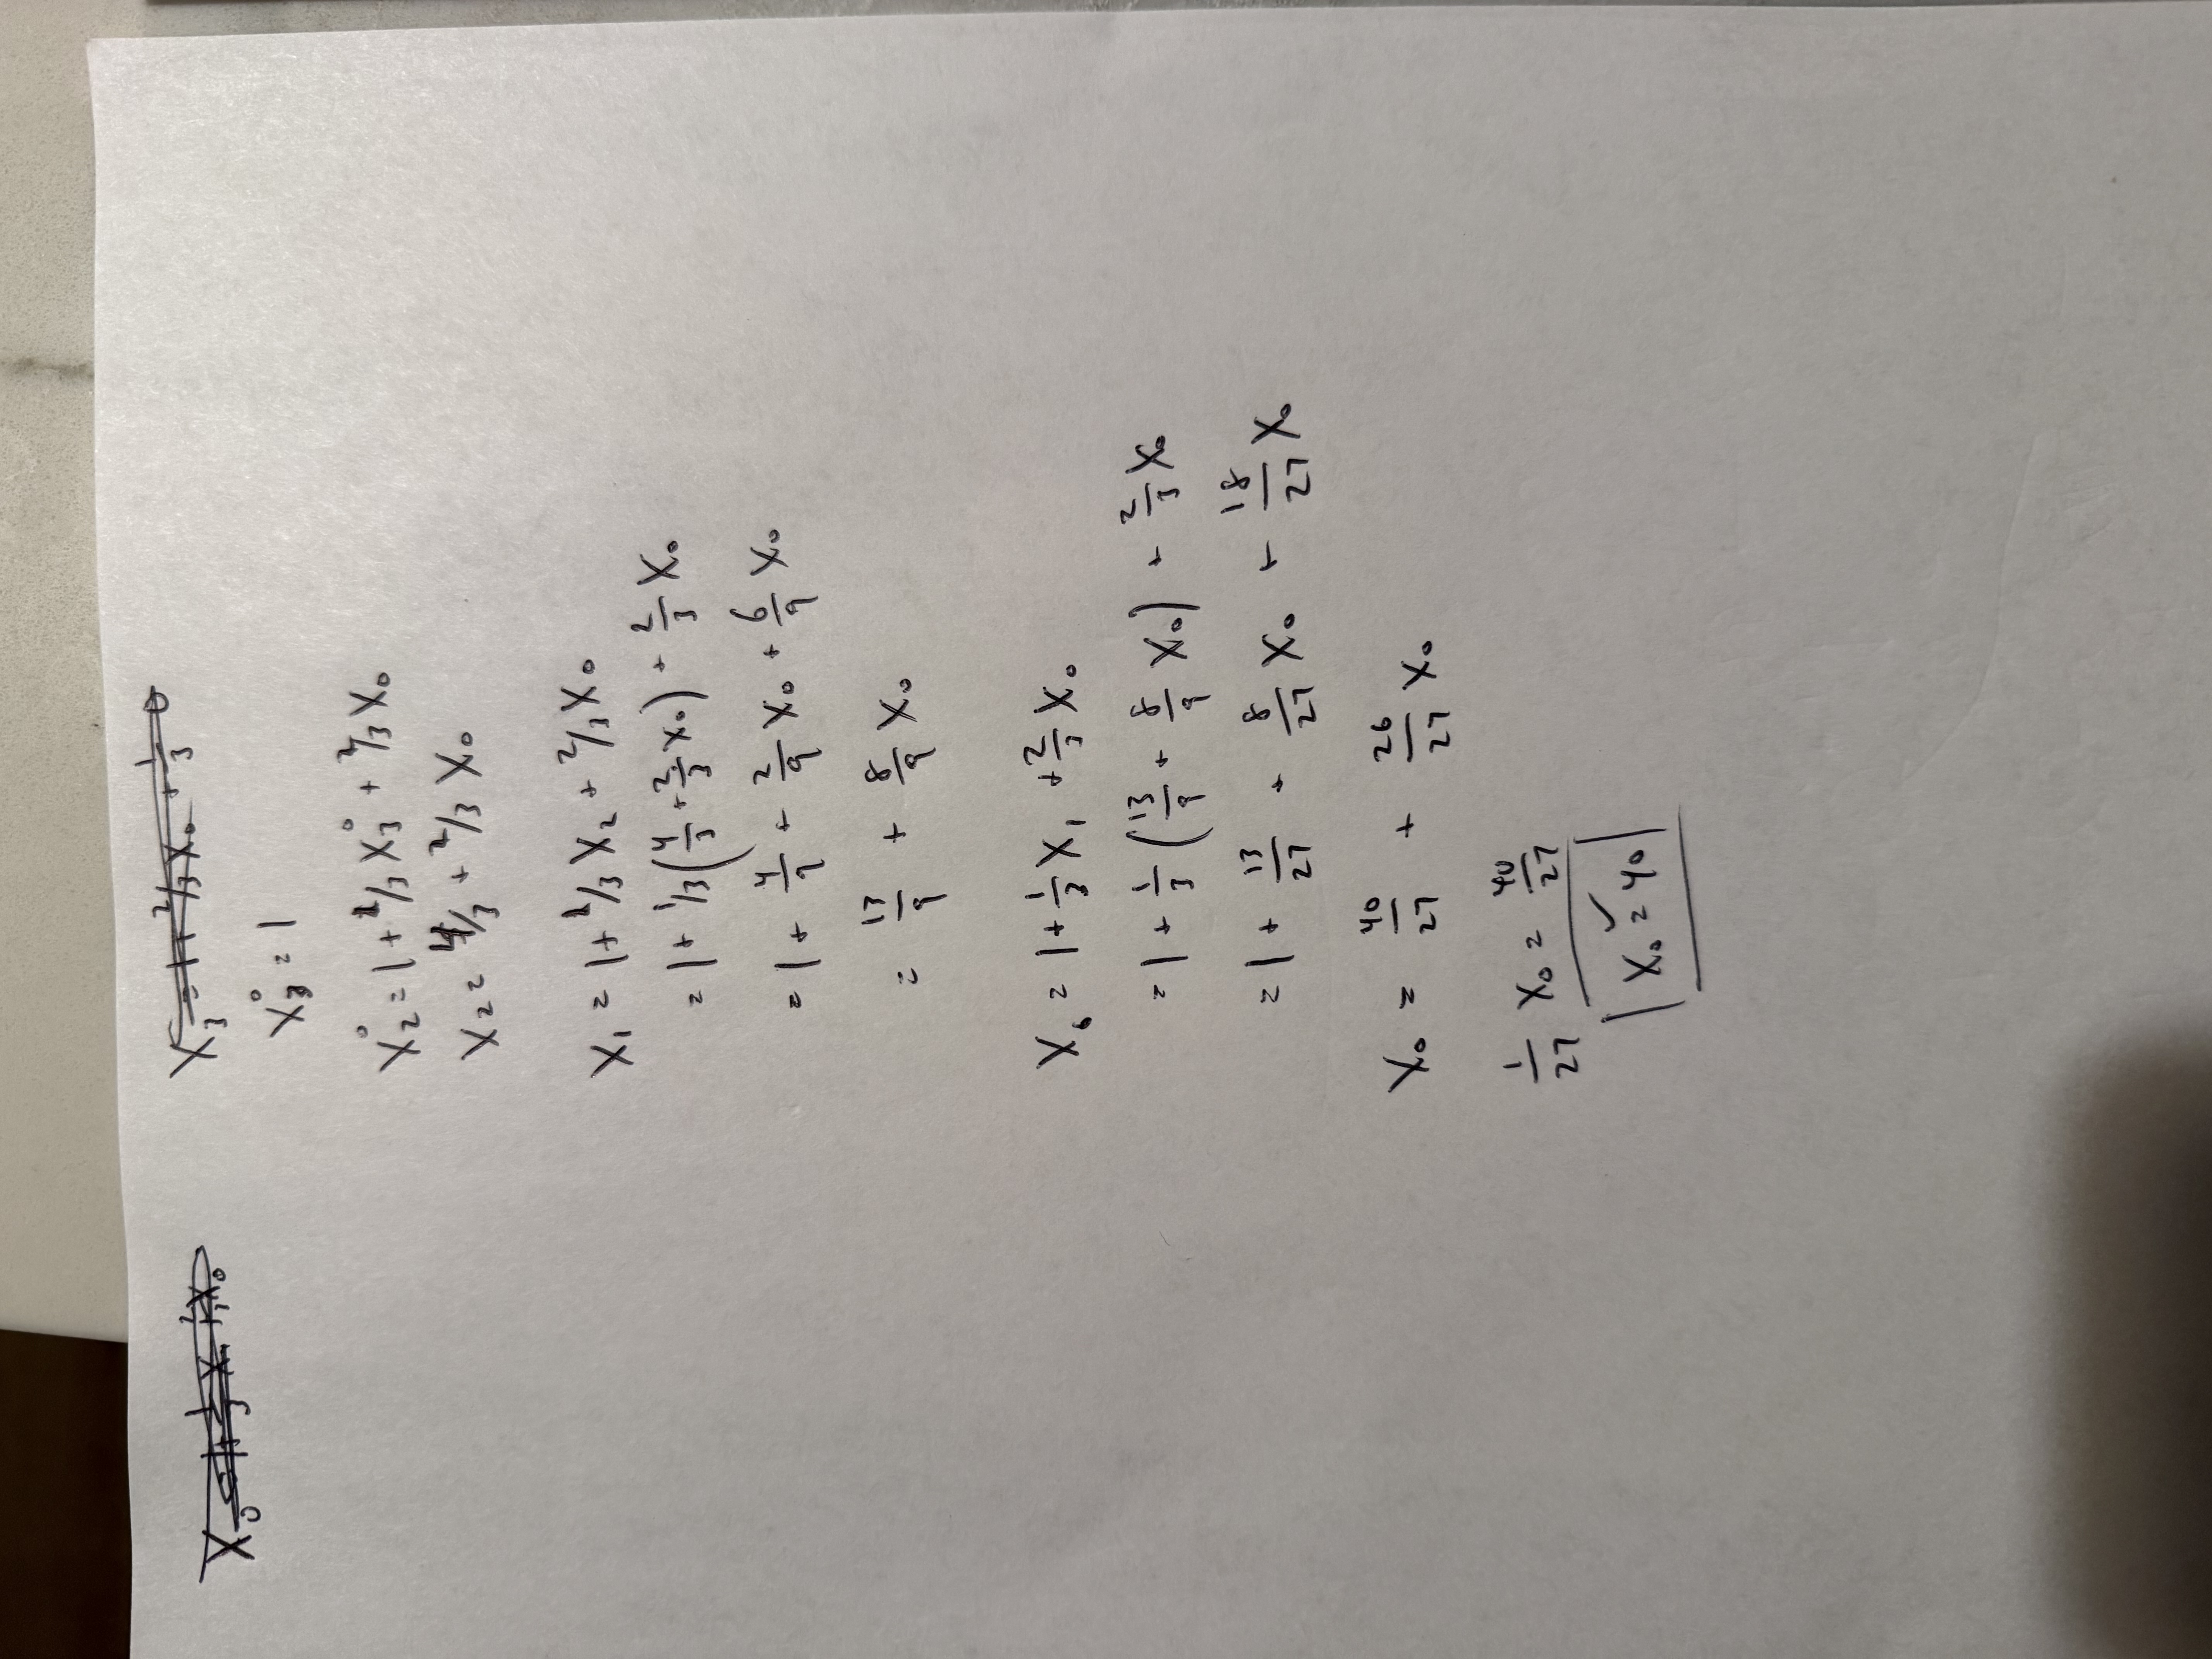 X₃° = 1
X₂° = 1 + ²/₃ X₃° + ²/₃ X₀
X₂ = 4/3 + ²/₃ X₀
X₁ = 1 + ²/₃ X₂ + ²/₃ X₀
= 1 + 1/3 (4/3 + 2/3 X₀) + 2/3 X₀
= 1 + 4/9 + 2/9 X₀ + 6/9 X₀
= 13/9 + 8/9 X₀
X₀ = 1 + 1/3 X₁ + 2/3 X₀
= 1 + 1/3 (13/9 + 8/9 X₀) + 2/3 X₀
= 1 + 13/27 + 8/27 X₀ + 18/27 X₀
X₀ = 40/27 + 26/27 X₀
1/27 X₀ = 40/27
X₀ = 40